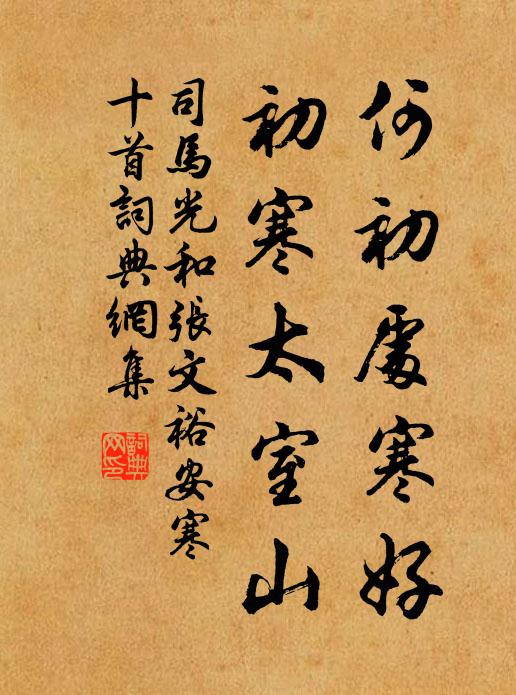 何初處寒好
初寒太室山
司馬光和張文裕安寒
十首詞典網集
詞典網印